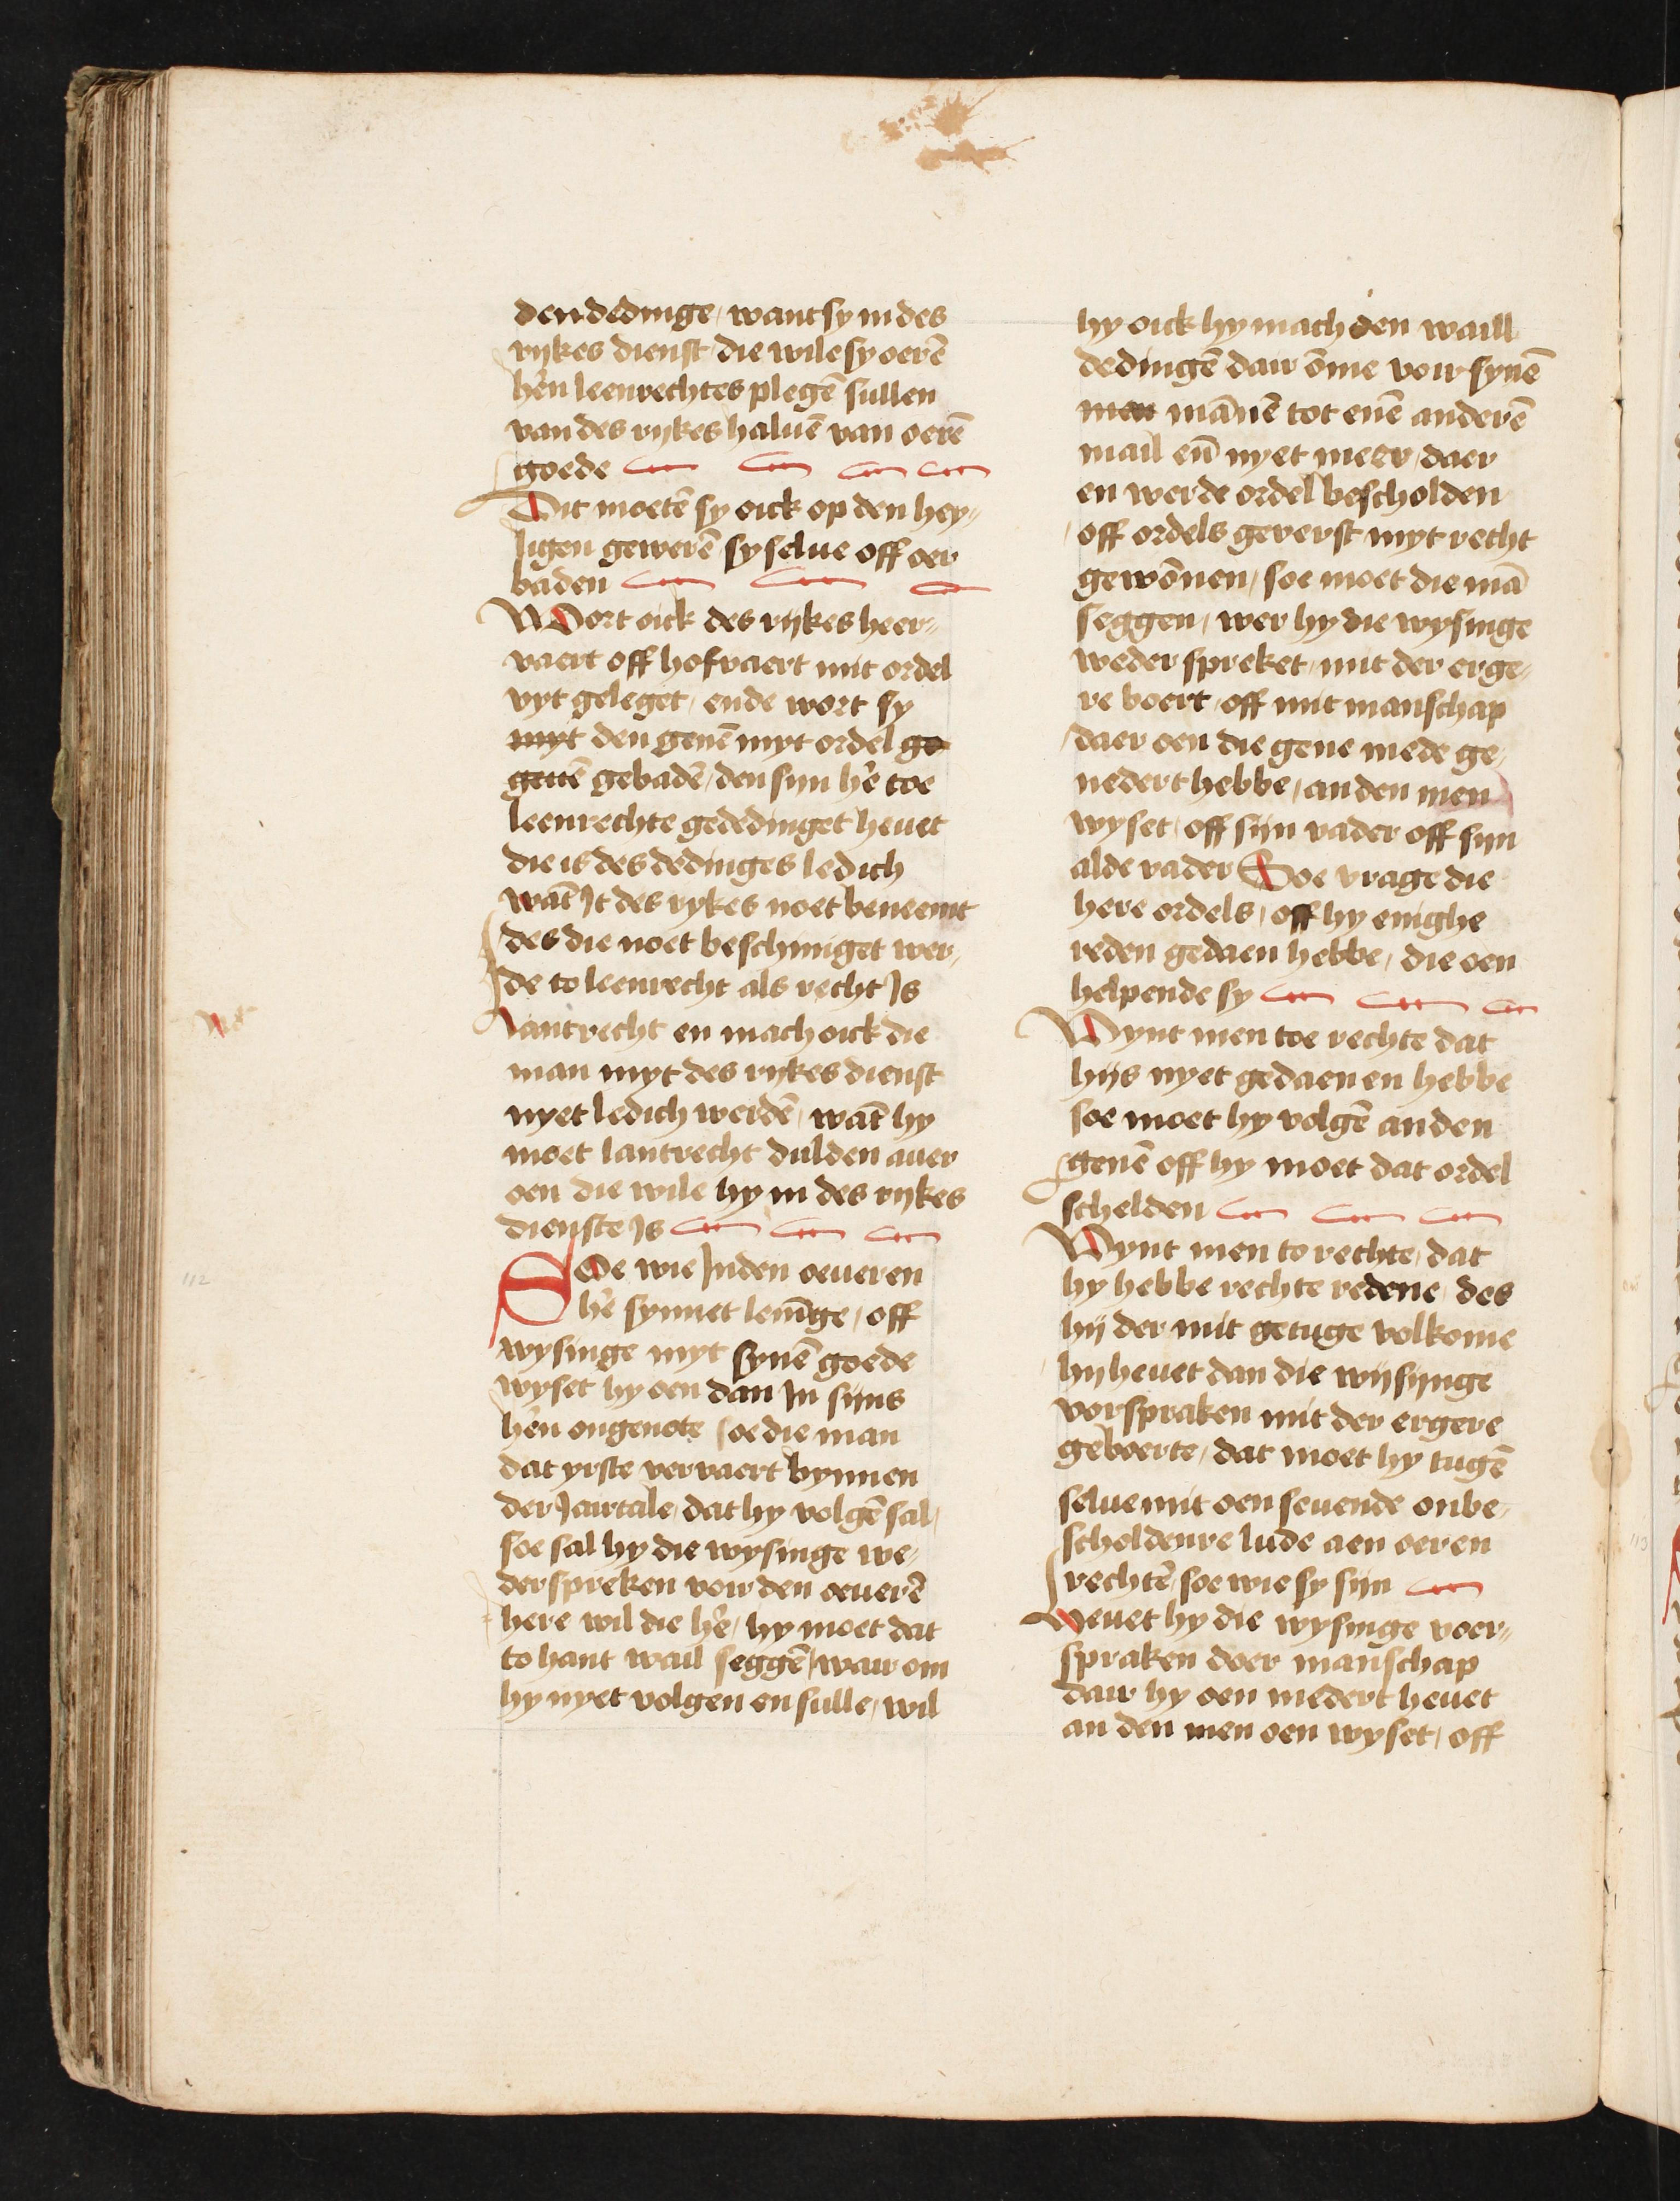 den dedinge / want sy in des
rijkes dienst / die wile sy oerē
hēn leenrechtes plegē sullen
van des rijkes haluē van oerē
goede
Dit moetē sy oick op den hey„
ligen gewerē sy selue off oer
baden
Wort oick des rijkes heer„
vaert off hofvaert mit ordel
vyt geleget / ende wort sy
myt den genē myt ordel ge
geuē gebadē / den sijn hē toe
leenrechte gededinget heuet
die is des dedinges ledich
wāt It des rykes noet beneemt
des die noet beschiniget wer„
de to leenrecht als recht Is
Lantrecht en mach oick die
man myt des rijkes dienst
nyet ledich werdē / wāt hy
moet lantrecht dulden auer
oen die wile hy in des rijkes
dienste Is
112
SOe wie Inden oeueren
hē synnet lenīge / off
wysinge myt synē goede
wyset hy oen dan In sijns
hēn ongenote / soe die man
dat yrste vervaert bynnen
der Jairtale / dat hy volgē sal /
soe sal hy die wysinge we„
derspreken voir den oeuerē
here wil die hē / hy moet dat
to hant wail seggē / wair om
hy nyet volgen en sulle / wil
hy oick hy mach den waill
dedingē dair ōme voir synē
men mānē tot enē anderē
mail eñ nyet meer / daer
en werde ordel bescholden
off ordels geverst myt recht
gewōnen / soe moet die mā
seggen / wer hy die wysinge
weder spreket / mit der erge„
re boert / off mit manschap
daer oen die gene mede ge„
nedert hebbe / an den men
wyset / off sijn vader off sijn
alde vader Soe vrage die
here ordels / off hy enighe
reden gedaen hebbe / die oen
helpende sy
Vynt men toe rechte dat
hijs nyet gedaen en hebbe
soe moet hy volgē an den
genē off hy moet dat ordel
schelden
Vynt men to rechte / dat
hy hebbe rechte redene / des
hij der mit getuge volkome
hij heuet dan die wijsijnge
vorspraken mit der ergere
geboerte / dat moet hy tugē
selue mit oen seuende onbe„
scholdenre lude aen oeren
rechtē / soe wie sy sijn
Heuet hy die wysinge voer„
spraken doer manschap
dair hy oen nedert heuet
an den men oen wyset / off